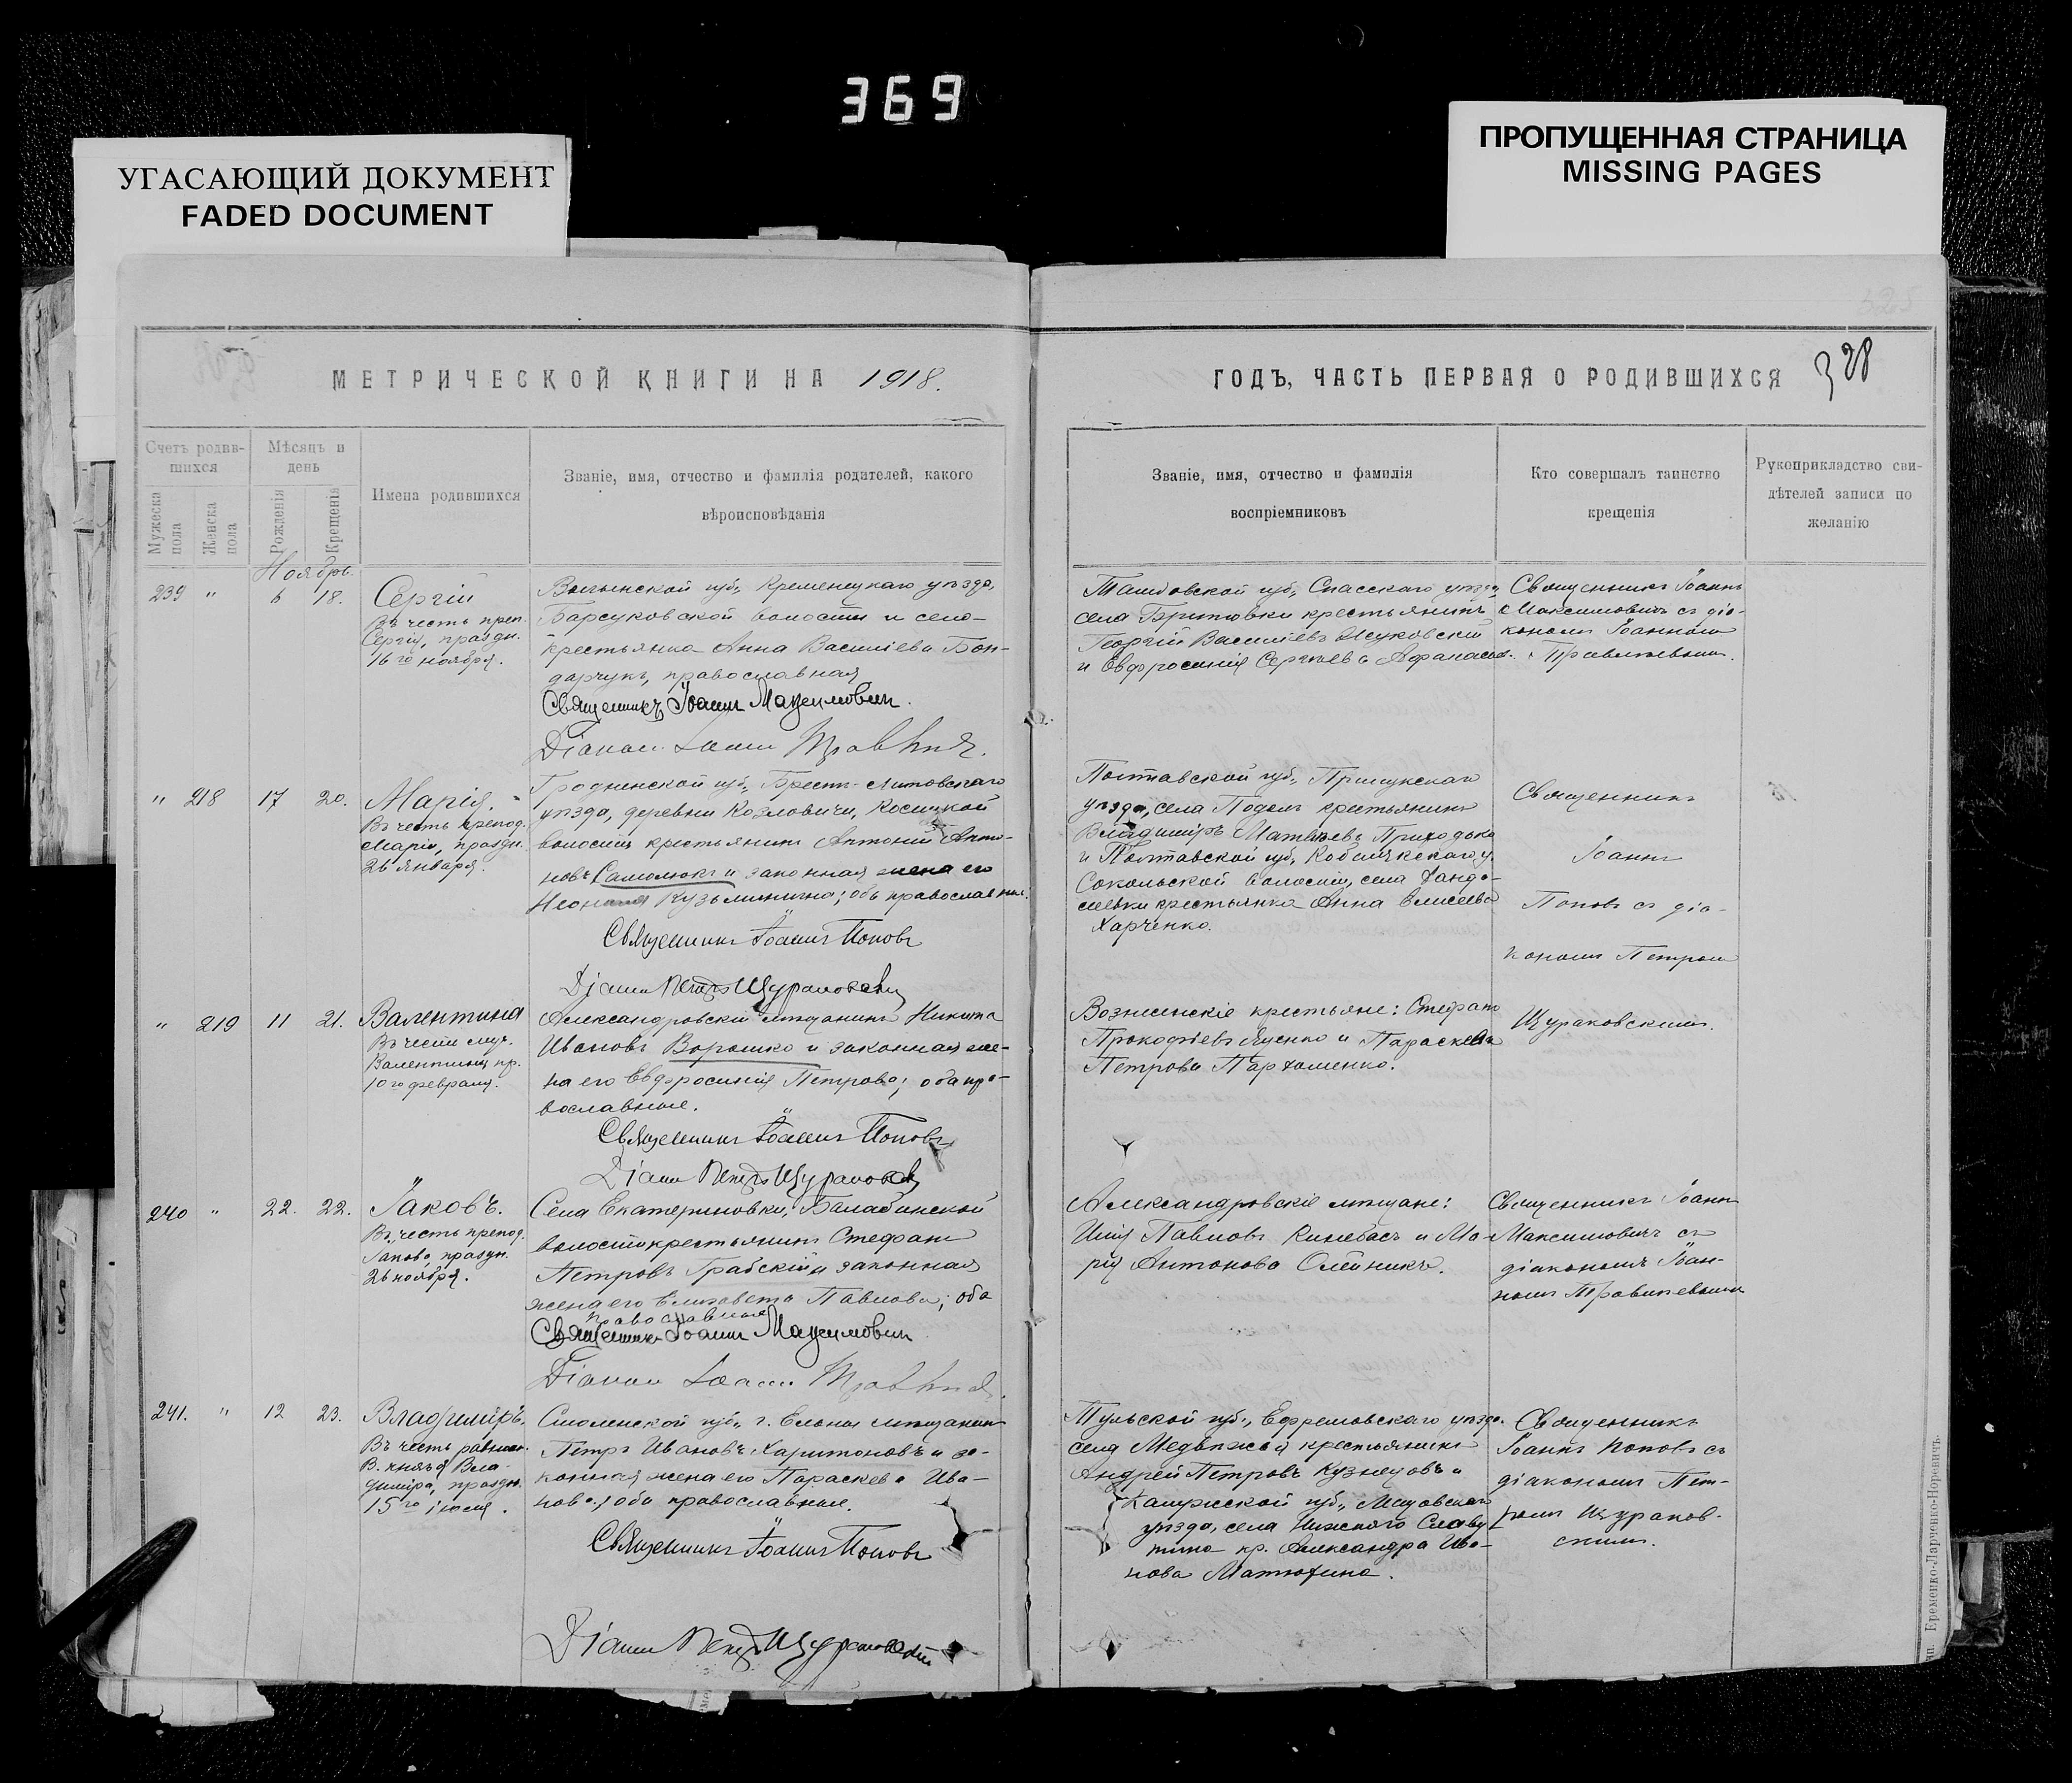 369
УГАСАЮЩИЙ ДОКУМЕНТ
FADED DOCUMENT
ПРОПУЩЕННАЯ СТРАНИЦА
MISSING PAGES
МЕТРИЧЕСКОЙ КНИГИ НА 1918.
Счетъ родив-
шихся
Мѣсяцъ и
день
Мужеска
пола
Женска
пола
Рожденія
Крещенія
Имена родившихся
Званіе, имя, отчество и фамилія родителей, какого
вѣроисповѣданія
Ноябрь.
239 " 6 18.
Сергій
Въ честь преп.
Сергія, праздн.
16го ноября.
Волынской губ., Кременецкаго уѣзда,
Барсуковской волости и села
крестьянка Анна Василіева Бон-
дарчукъ, православная
Священникъ Іоаннъ Максимовичъ.
Діаконъ Іоаннъ
" 218 17 20.
Марія.
Въ честь препод.
Маріи, праздн.
26 января.
Гродненской губ., Брестъ-Литовскаго
уѣзда, деревни Козловичи, Косицкой
волости крестьянинъ Антоній Анто-
новъ Самолюкъ и законная жена его
Кузьминична; оба православные.
Священникъ Іоаннъ Поповъ
Діаконъ Петръ Щураковскій
" 219 11 21.
Валентина
Въ честь муч.
Валентины пр.
10го февраля.
Александровскій мѣщанинъ Никита
Ивановъ Ворошко и законная же-
на его Евфросинія Петрова; оба пра-
вославные.
Священникъ Іоаннъ Поповъ
Діаконъ Петръ Щураковскій
240 " 22. 22.
Іаковъ.
Въ честь препод.
Іакова, праздн.
26 ноября.
Села Екатериновки, Балабинской
волости крестьянинъ Стефанъ
Петровъ Грабскій и законная
жена его Елизавета Павлова; оба
православные
Священникъ Іоаннъ Максимовичъ
Діаконъ Іоаннъ
241. " 12 23.
Владиміръ.
Въ честь равноап.
В. князя Вла-
диміра, праздн.
15го іюля.
Смоленской губ., г. Ельни мѣщанинъ
Петръ Ивановъ Харитоновъ и за-
конная жена его Параскева Ива-
нова; оба православные.
Священникъ Іоаннъ Поповъ
Діаконъ Петръ Щураковскій
ГОДЪ, ЧАСТЬ ПЕРВАЯ О РОДИВШИХСЯ
328
Званіе, имя, отчество и фамилія
воспріемниковъ
Кто совершалъ таинство
крещенія
Рукоприкладство сви-
дѣтелей записи по
желанію
Тамбовской губ., Спасскаго уѣзда,
села крестьянинъ
Георгій Василіевъ
и Евфросинія Сергіева
Священникъ Іоаннъ
Максимовичъ съ діа-
кономъ Іоанномъ
Полтавской губ., Прилукскаго
уѣзда, села Подолъ крестьянинъ
Владиміръ Матвѣевъ Приходько
и Полтавской губ., Кобелякскаго у.
Сокольской волости, села
крестьянка Анна Елисеева
Харченко.
Священникъ
Іоаннъ
Поповъ съ діа-
кономъ Петромъ
Щураковскимъ.
Вознесенскіе крестьяне: Стефанъ
Прокофіевъ Яценко и Параскева
Петрова Пархоменко.
Александровскіе мѣщане:
Илія Павловъ Кинебасъ и Ма-
рія Антонова Олейникъ.
Священникъ Іоаннъ
Максимовичъ съ
діакономъ Іоан-
номъ
Тульской губ., Ефремовскаго уѣзда.
села Медвѣжья крестьянинъ
Андрей Петровъ Кузнецовъ и
Калужской губ., Мещовскаго
уѣзда, села Нижняго
кр. Александра Ива-
нова Матюхина.
Священникъ
Іоаннъ Поповъ съ
діакономъ Пет-
ромъ Щураков-
скимъ.
Еременко-Ларченко-Норевичъ.